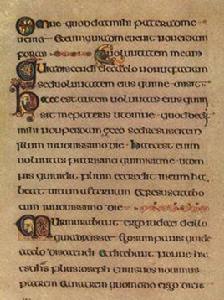 Omne quod dat mihi pater ad me
ueniet eum qui uenit ad me non
foras uoluntatem meam
Quia discendi de caelo non ut faciam
sed uoluntatem eius qui me misit
Haec est autem uoluntas eius qui mi
sit me patris ut omne quod dedit
mihi non perdam ex eo sed resuscitem
illum in nouissimo die Haec est enim
uoluntas patris mei ut omnis qui
uidit filium et credit in eum ha
beat uitam aeternam et resuscitabo
eum in nouissimo die
Murmurabant ergo iudaei de illo
quia dixisset Ego sum panis qui
de caelo discendi et dicebant nonne hic
est filius ioseph cuius nos nouimus
patrem et matrem quomodo ergo dicit